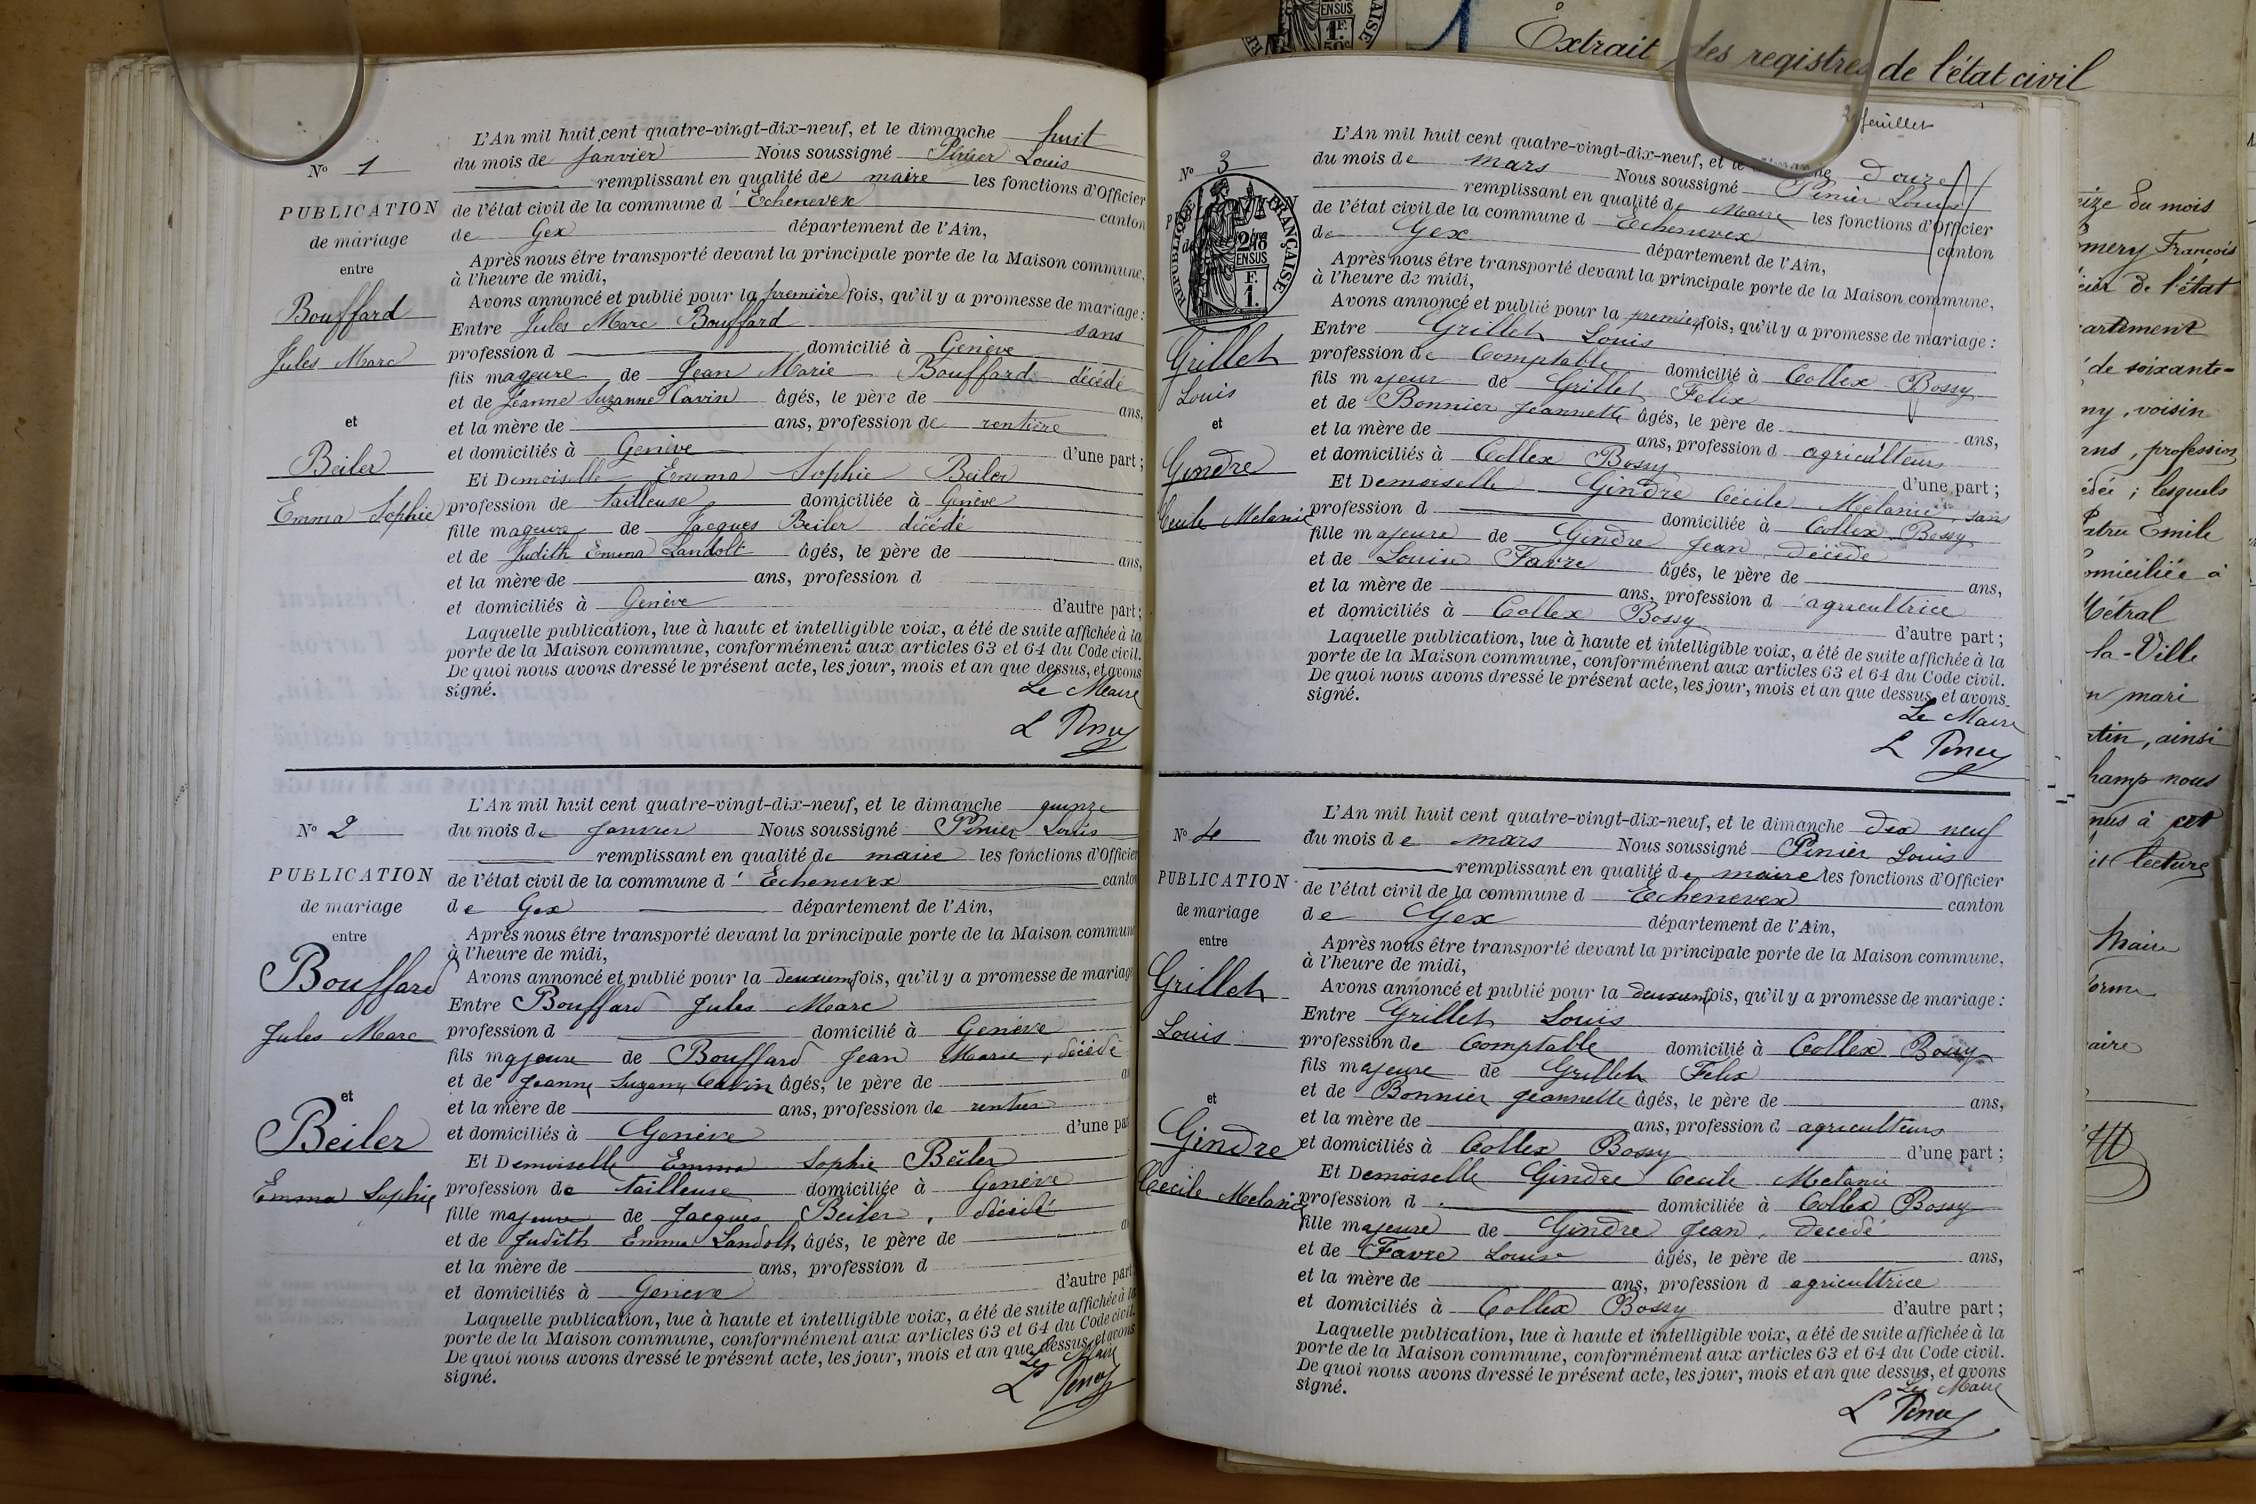 L'An mil huit cent quatre-vingt-dix-neuf, et le dimanche huit
N° 1
du mois de Janvier Nous soussigné Pénier Louis
remplissant en qualité de maire les fonctions d'Officier
PUBLICATION
de mariage
entre
Bouffard
Jules Marc
et
Beiler
Emma Sophie
de l'état civil de la commune d'Echenevex canton
de Gex département de l'Ain,
Après nous être transporté devant la principale porte de la Maison commune,
à l'heure de midi,
Avons annoncé et publié pour la première fois, qu'il y a promesse de mariage :
Entre Jules Marc Bouffard sans
profession d domicilié à Genève
fils mageure de Jean Marie Bouffard décédé
et de Jeanne Suzanne Cavin âgés, le père de ans,
et la mère de ans, profession de rentière
et domiciliés à Genève d'une part ;
Et Demoiselle Emma Sophie Beiler
profession de tailleuse domiciliée à Genève
fille mageure de Jacques Beiler décédé
et de Judith Emma Landolt âgés, le père de ans,
et la mère de ans, profession d
et domiciliés à Genève d'autre part ;
Laquelle publication, lue à haute et intelligible voix, a été de suite affichée à la
porte de la Maison commune, conformément aux articles 63 et 64 du Code civil.
De quoi nous avons dressé le présent acte, les jour, mois et an que dessus, et avons
signé.
Le Maire
L Penier
L'An mil huit cent quatre-vingt-dix-neuf, et le dimanche quinze
N° 2
du mois de Janvier Nous soussigné Pénier Louis
remplissant en qualité de maire les fonctions d'Officier
PUBLICATION
de mariage
entre
Bouffard
Jules Marc
et
Beiler
Emma Sophie
de l'état civil de la commune d'Echenevex canton
de Gex département de l'Ain,
Après nous être transporté devant la principale porte de la Maison commun
à l'heure de midi,
Avons annoncé et publié pour la deuxième fois, qu'il y a promesse de mariag
Entre Bouffard Jules Marc
profession d domicilié à Genève
fils majeure de Bouffard Jean Marie, décédé
et de Jeanne Suzanne Cavin âgés, le père de
et la mère de ans, profession de rentier
et domiciliés à Genève d'une par
Et Demoiselle Emma Sophie Beiler
profession de tailleuse domiciliée à Genève
fille majeure de Jacques Beiler, décédé
et de Judith Emma Landolt âgés, le père de
et la mère de ans, profession d
et domiciliés à Genève d'autre part
Laquelle publication, lue à haute et intelligible voix, a été de suite affichée à la
porte de la Maison commune, conformément aux articles 63 et 64 du Code civil.
De quoi nous avons dressé le présent acte, les jour, mois et an que dessus, et avons
signé.
Le Maire
L Penier
2e feuillet
L'An mil huit cent quatre-vingt-dix-neuf, et le dimanche douze
N° 3
du mois de mars Nous soussigné Penier Louis
remplissant en qualité de Maire les fonctions d'Officier
RÉPUBLIQUE FRANÇAISE
2/10es
EN SUS
1 F.
Grillet
Louis
et
Gindre
Cecile Melanie
de l'état civil de la commune d Echenevex canton
de Gex département de l'Ain,
Après nous être transporté devant la principale porte de la Maison commune,
à l'heure de midi,
Avons annoncé et publié pour la première fois, qu'il y a promesse de mariage :
Entre Grillet Louis
profession de Comptable domicilié à Collex Bossy
fils majeur de Grillet Felix
et de Bonnier Jeannette âgés, le père de ans,
et la mère de ans, profession d agriculteurs
et domiciliés à Collex Bossy d'une part ;
Et Demoiselle Gindre Cécile Mélanie, sans
profession d domiciliée à Collex Bossy
fille majeure de Gindre Jean, décédé
et de Louise Favre âgés, le père de ans,
et la mère de ans, profession d'agricultrice
et domiciliés à Collex Bossy d'autre part ;
Laquelle publication, lue à haute et intelligible voix, a été de suite affichée à la
porte de la Maison commune, conformément aux articles 63 et 64 du Code civil.
De quoi nous avons dressé le présent acte, les jour, mois et an que dessus, et avons
signé.
Le Maire
L Penier
L'An mil huit cent quatre-vingt-dix-neuf, et le dimanche dix neuf
N° 4
du mois de mars Nous soussigné Penier Louis
remplissant en qualité de maire les fonctions d'Officier
PUBLICATION
de mariage
entre
Grillet
Louis
et
Gindre
Cécile Melanie
de l'état civil de la commune d Echenevex canton
de Gex département de l'Ain,
Après nous être transporté devant la principale porte de la Maison commune,
à l'heure de midi,
Avons annoncé et publié pour la deuxième fois, qu'il y a promesse de mariage :
Entre Grillet Louis
profession de Comptable domicilié à Collex Bossy
fils majeure de Grillet Felix
et de Bonnier Jeannette âgés, le père de ans,
et la mère de ans, profession d agriculteurs
et domiciliés à Collex Bossy d'une part ;
Et Demoiselle Gindre Cecile Melanie
profession d domiciliée à Collex Bossy
fille majeure de Gindre Jean, décédé
et de Favre Louise âgés, le père de ans,
et la mère de ans, profession d agricultrice
et domiciliés à Collex Bossy d'autre part ;
Laquelle publication, lue à haute et intelligible voix, a été de suite affichée à la
porte de la Maison commune, conformément aux articles 63 et 64 du Code civil.
De quoi nous avons dressé le présent acte, les jour, mois et an que dessus, et avons
signé.
Le Maire
L Penier
EN SUS
1 F.
50c
Extrait des registres de l'état civil
eize du mois
omery François
cier de l'état
artement
de soixante-
ny, voisin
ans, profession
édée ; lesquels
Patru Emile
omiciliée à
Métral
la-Ville
n mari
tin, ainsi
hamp nous
nus à cet
it lecture
Maire
forme
aire